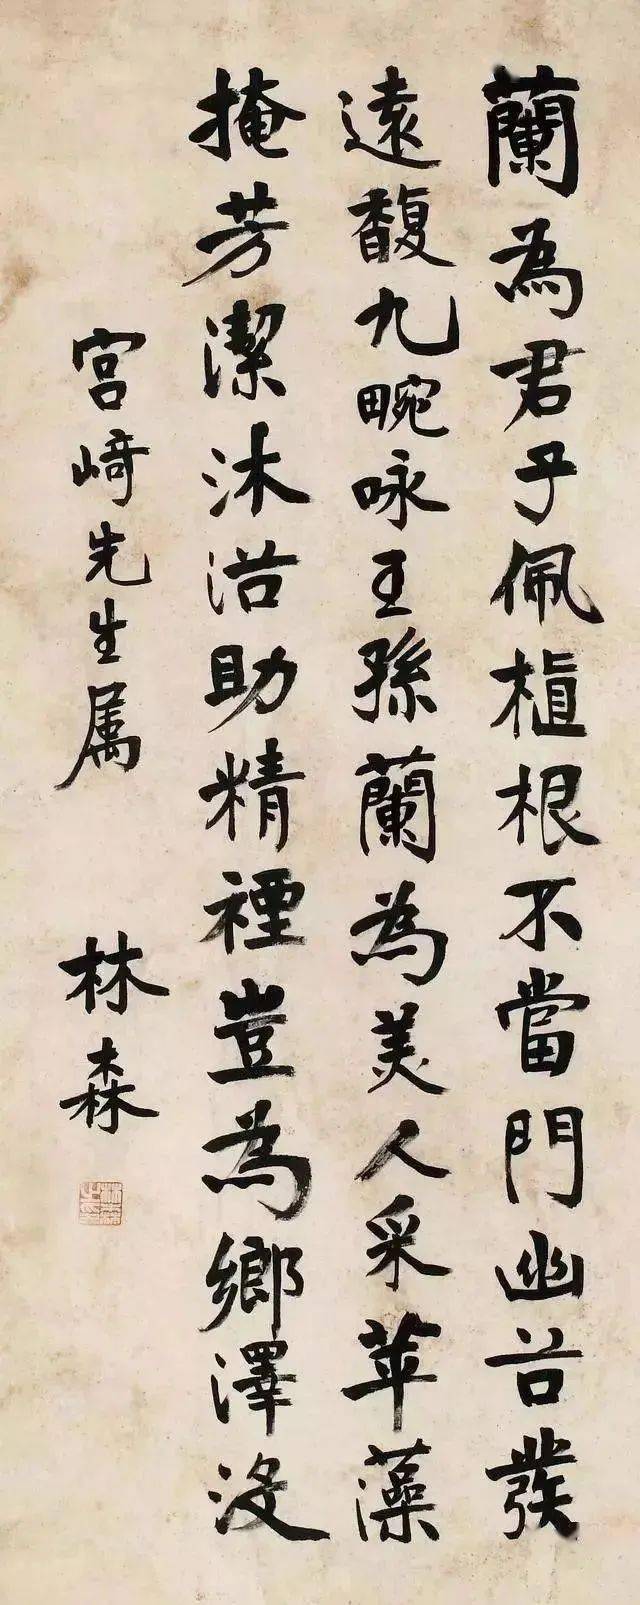 蘭為君子佩植根不當門幽谷發
遠馥九畹咏王孫蘭為美人采苹藻
掩芳潔沐浴助精禋豈為鄉澤沒
宮﨑先生属 林森